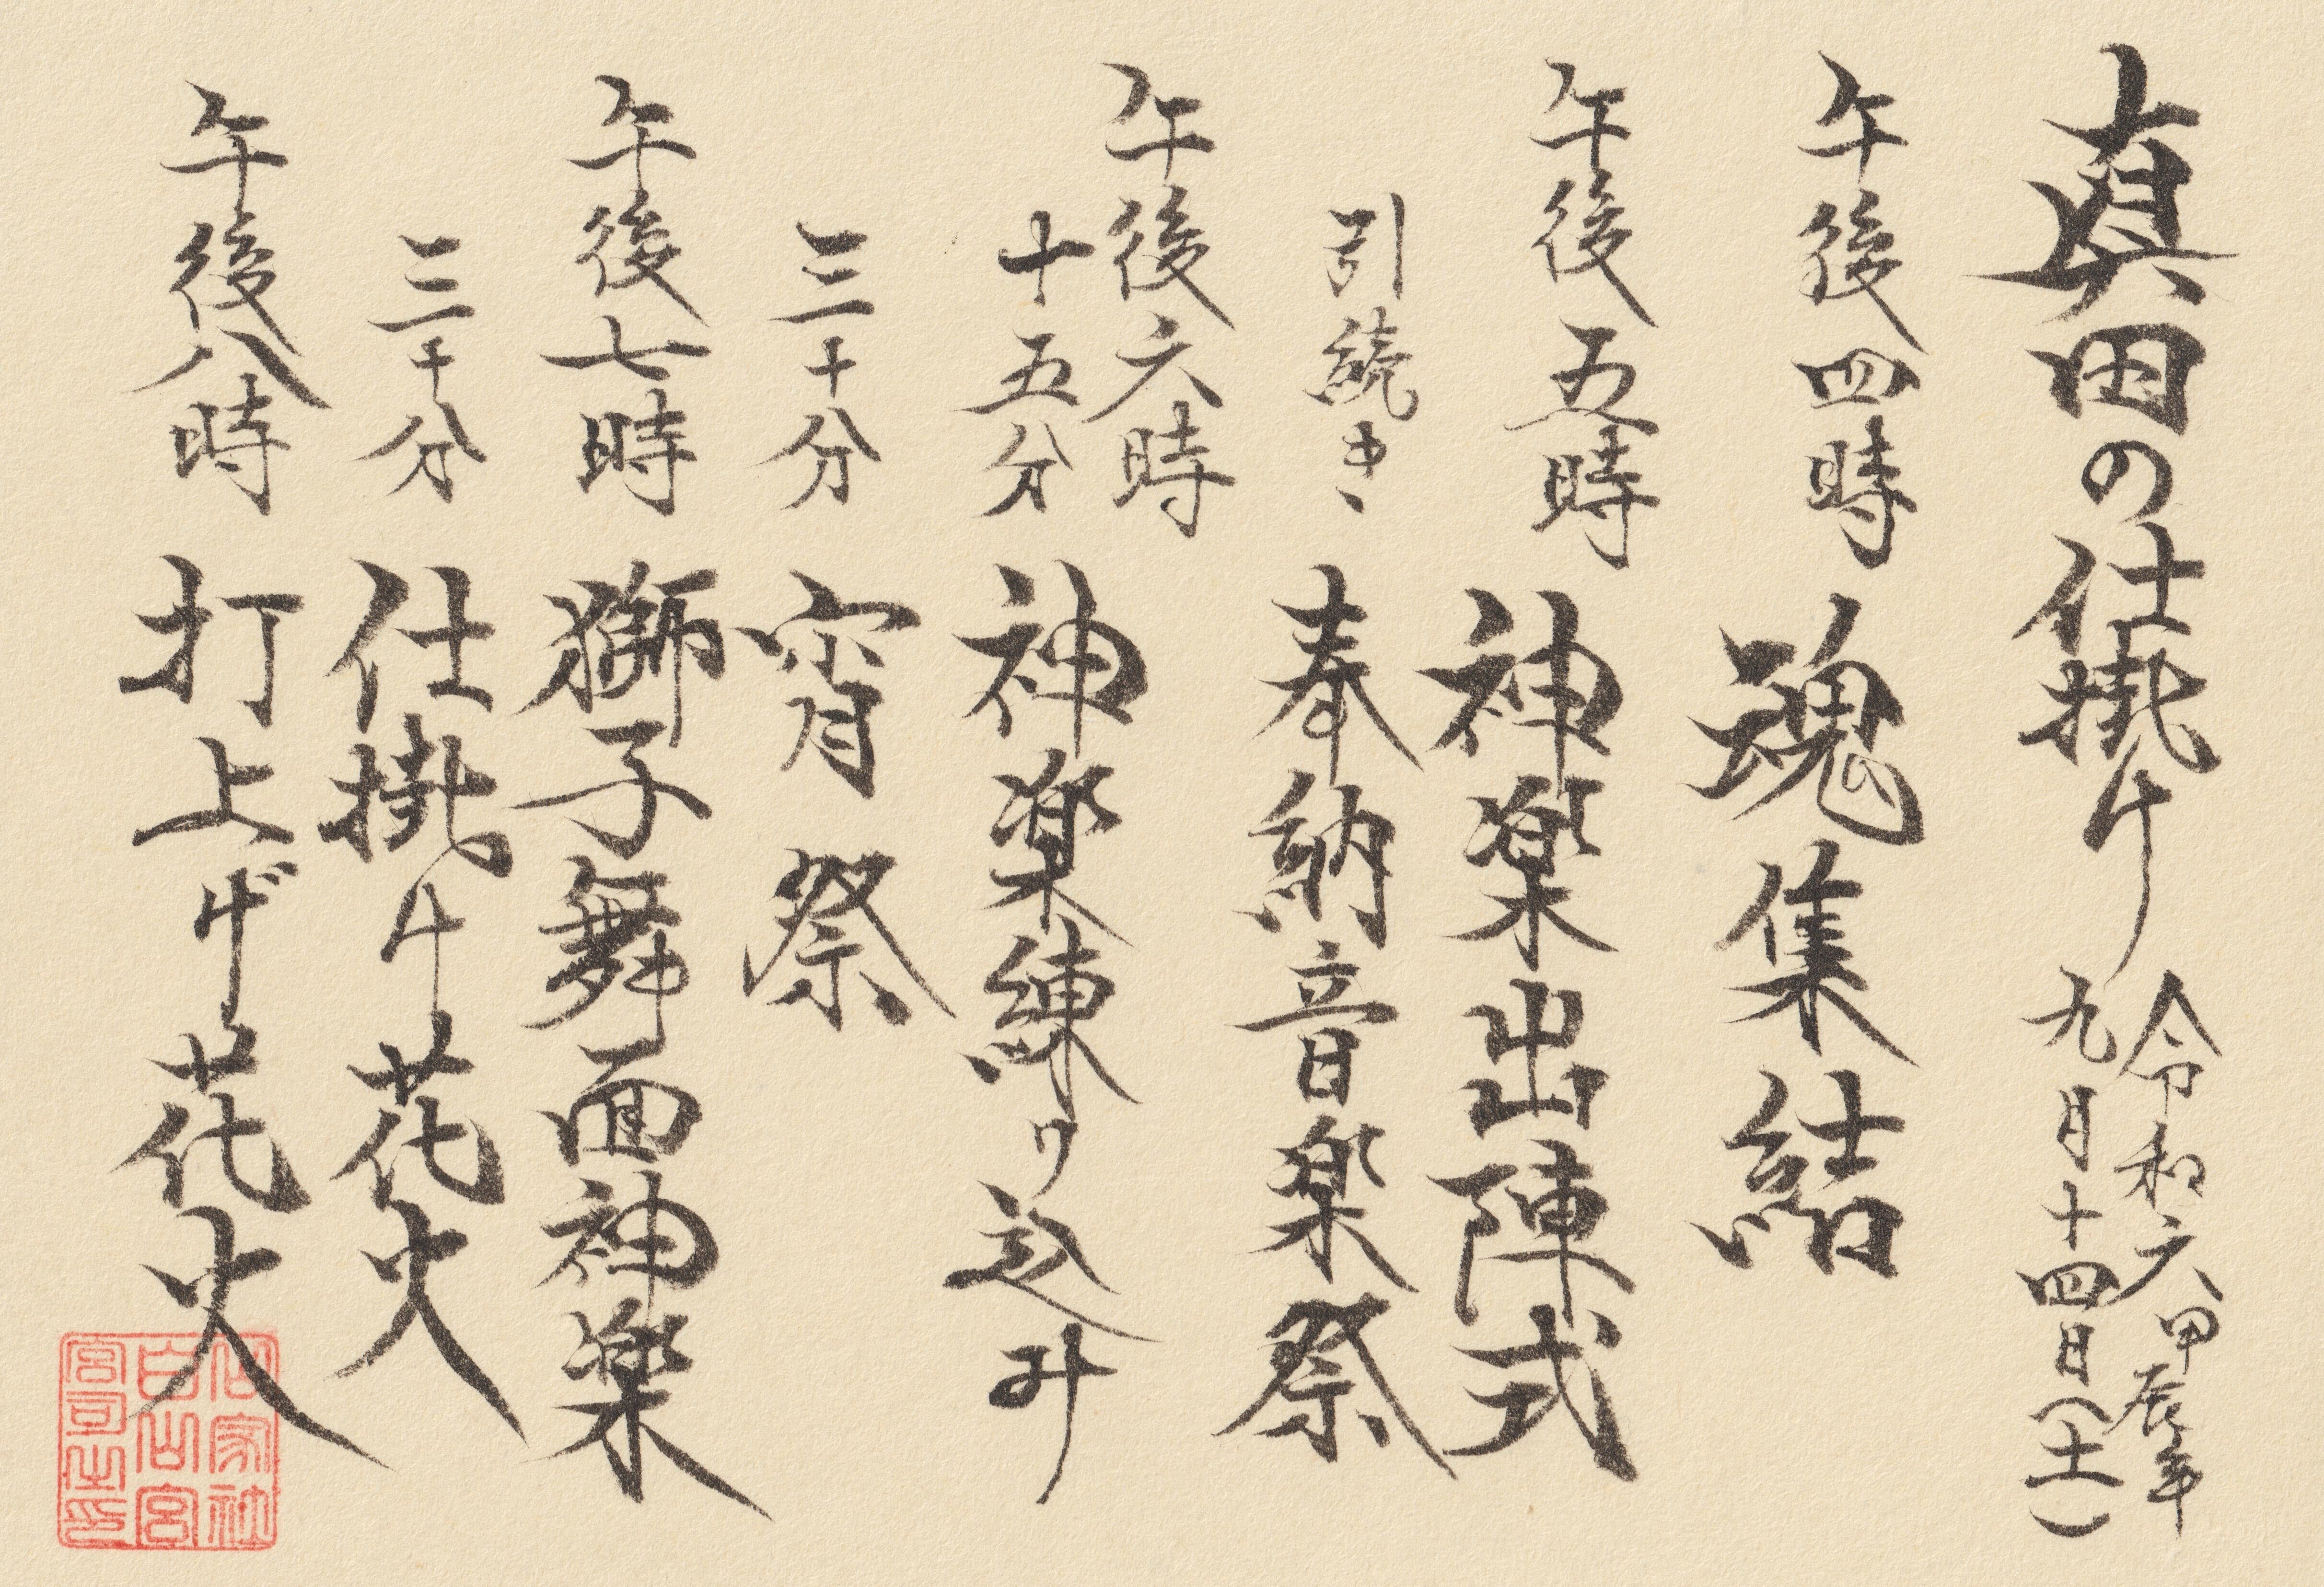 真田の仕掛け
令和六甲辰年
九月十四日(土)
午後四時 魂集結
午後五時 神楽出陣式
引続き、奉納音楽祭
午後六時
十五分 神楽練り込み
三十分 宵祭
午後七時 獅子舞面神楽
三十分 仕掛け花火
午後八時 打上げ花火
山家社
白山宮
宮司之印